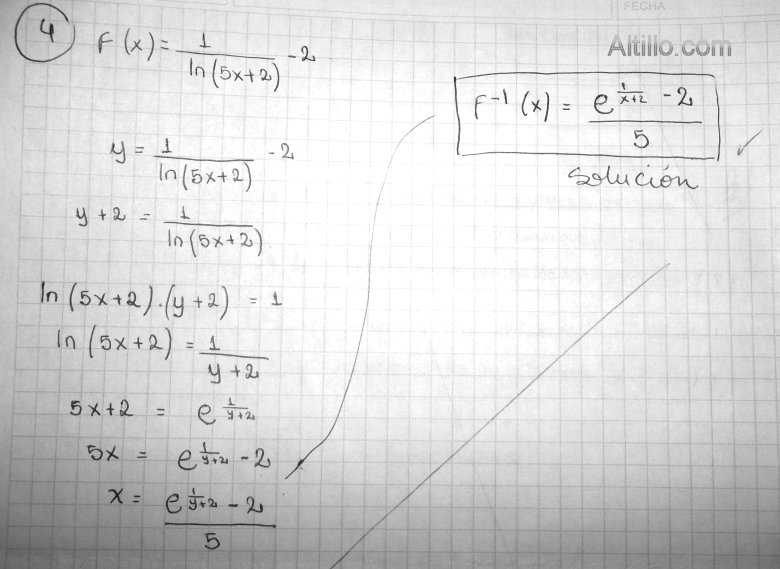 FECHA
Altillo.com
4
F(x) = 1/ln(5x+2) - 2
y = 1/ln(5x+2) - 2
y + 2 = 1/ln(5x+2)
ln(5x+2).(y+2) = 1
ln(5x+2) = 1/(y+2)
5x+2 = e^(1/(y+2))
5x = e^(1/(y+2)) - 2
x = (e^(1/(y+2)) - 2)/5
F^-1(x) = (e^(1/(x+2)) - 2)/5
Solución